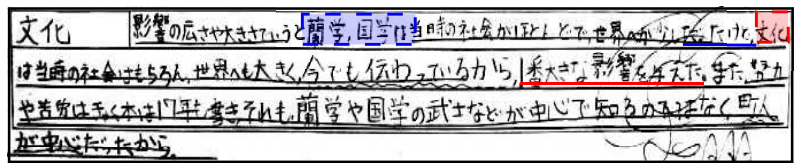 文化 影響の広さや大きさでいうと蘭学、国学は当時の社会がほとんどで、世界へが少しだったけど、文化
は当時の社会はもちろん、世界へも大きく、今でも伝わっているから、1番大きな影響を与えた。また、努力
や苦労はきゃく本は17年も書きそれも、蘭学や国学の武士などが中心で知るのではなく町人
が中心だったから。